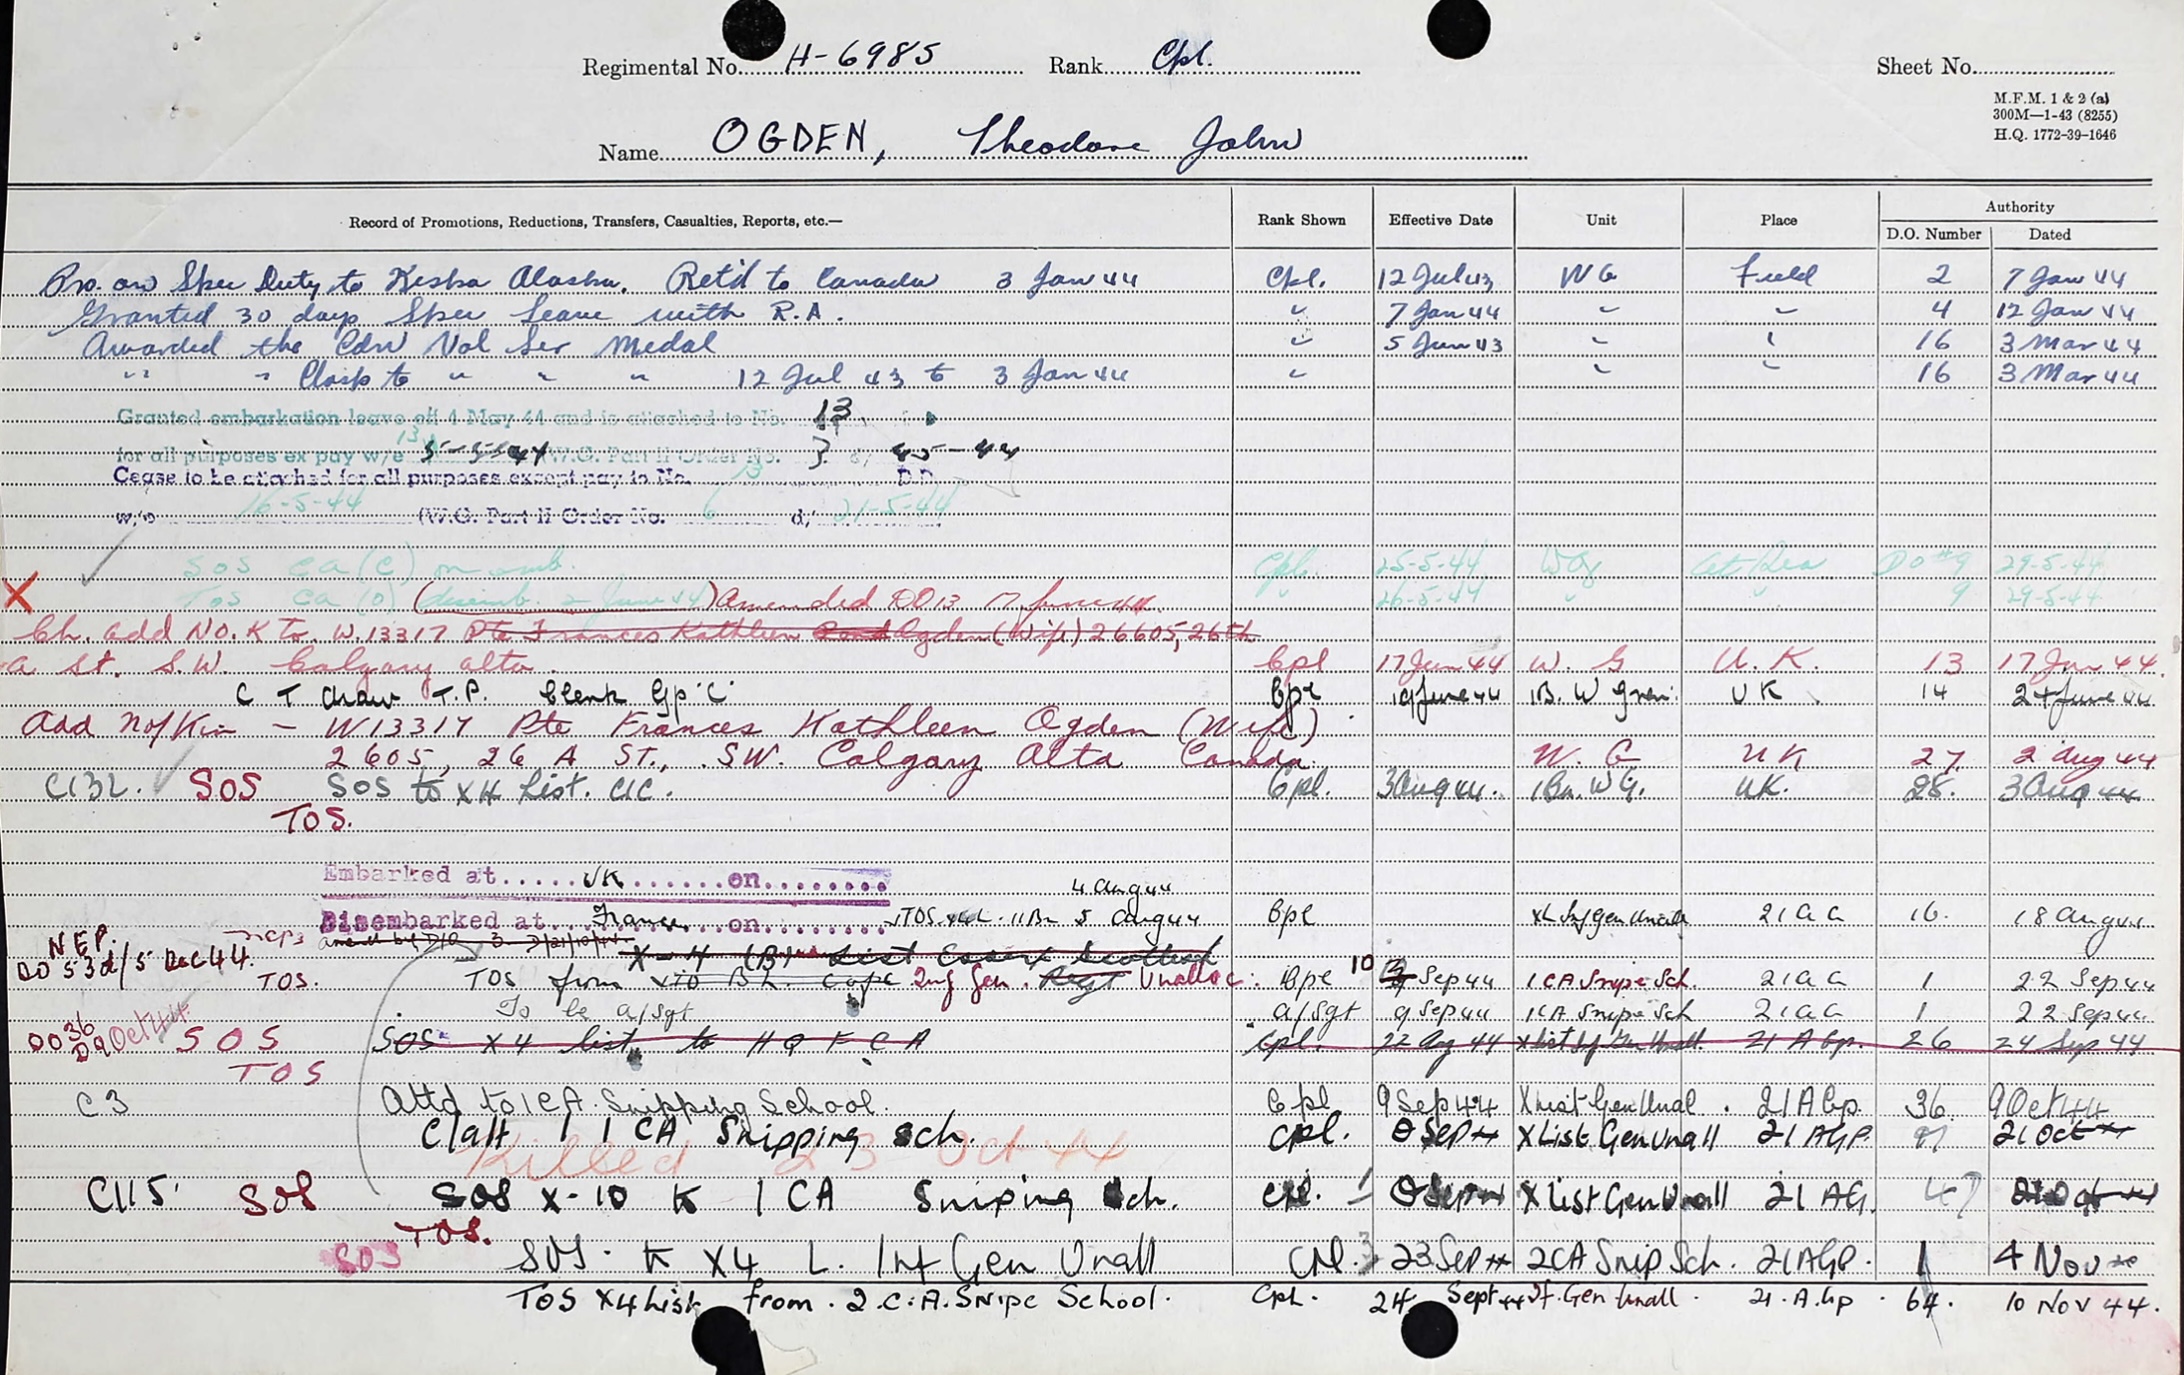 Regimental No. H-6985 Rank Cpl. Sheet No.
M.F.M. 1 & 2 (a)
300M—1-43 (8255)
H.Q. 1772-39-1646
Name OGDEN, Theodore John
Record of Promotions, Reductions, Transfers, Casualties, Reports, etc.— Rank Shown Effective Date Unit Place Authority
D.O. Number Dated
Pro. on Spec Duty to Kiska Alaska. Ret'd to Canada 3 Jan 44 Cpl. 12 Jul 43 WG Field 2 7 Jan 44
Granted 30 days Spec Leave with R.A. " 7 Jan 44 " " 4 12 Jan 44
Awarded the Cdn Vol Ser Medal " 5 Jun 43 " " 16 3 Mar 44
" " Clasp to " " " 12 Jul 43 to 3 Jan 44 " " " 16 3 Mar 44
Granted embarkation leave eff 4 May 44 and is attached to No. 13
for all purposes ex pay w/e 5-5-44 (W.G. Part II Order No. 3 d/
Cease to be attached for all purposes except pay to No. 13 D.D.
w/e 16-5-44 (W.G. Part II Order No. 6 d/ 21-5-44
SOS CA (C) on emb. Cpl. 25-5-44 WG At Sea DO #9 29-5-44
X TOS CA (O) (disemb. 2 June 44) Amended DO13 17 June 44 " 26-5-44 " " 9 29-5-44
Ch. add No. K to W.13317 Pte Frances Kathleen Ogden (Wife) 26605, 26th
a St. S.W. Calgary alta. Cpl 17 Jun 44 W. G U.K. 13 17 Jun 44
C T draw T.P. Clerk Gp 'C' Cpl 19 June 44 1B. W Gren. UK 14 24 June 44
Add Nof/Kin — W13317 Pte Frances Kathleen Ogden (Wife)
2605, 26 A ST., SW. Calgary Alta Canada. W. G UK 27 2 Aug 44
C132. SOS SOS to X4 List. CIC. Cpl. 3 Aug 44. 1Bn. WG. UK. 28. 3 Aug 44
TOS.
Embarked at.....UK.......on........ 4 Aug 44
Disembarked at....France....on........ TOS X4 L. 11Bn 5 Aug 44 Cpl 21 A G 16. 18 Aug 44
NEP.
DO 53 d/5 Dec 44. X-4 (B) List Essex Scottish
TOS. TOS from Inf Gen. Regt Unalloc: Cpl 10 Sep 44 1 CA Snipe Sch. 21 A G 1 22 Sep 44
To be a/Sgt a/Sgt 9 Sep 44 1 CA Snipe Sch 21 A G 1 22 Sep 44
DO 36 D9 Oct 44 SOS SOS X4 list to HQ F C A Cpl. 22 Aug 44 X list Inf Gen Unall. 21 A Gp. 26 24 Sep 44
TOS
C3 Attd to 1 CA. Snipping School. Cpl 9 Sep 44 X List Gen Unal. 21 A Gp. 36 9 Oct 44
C/att 1 1 CA Snipping sch. Cpl. Sep 44 X List Gen Unall 21 AGP. 21 Oct 44
Killed 23 Oct 44
C115. SOS SOS X-10 to 1 CA Sniping Sch. Cpl. Sep 44 X List Gen Unall 21 AG. 47
TOS.
SOS SOS. to X4 L. Inf Gen Unall Cpl. 23 Sep 44 2CA Snip Sch. 21AGP. 1 4 Nov
TOS X4 List from. 2.C.A. Snipe School. Cpl. 24 Sept 44 If. Gen Unall. 21. A.Gp. 64. 10 Nov 44.